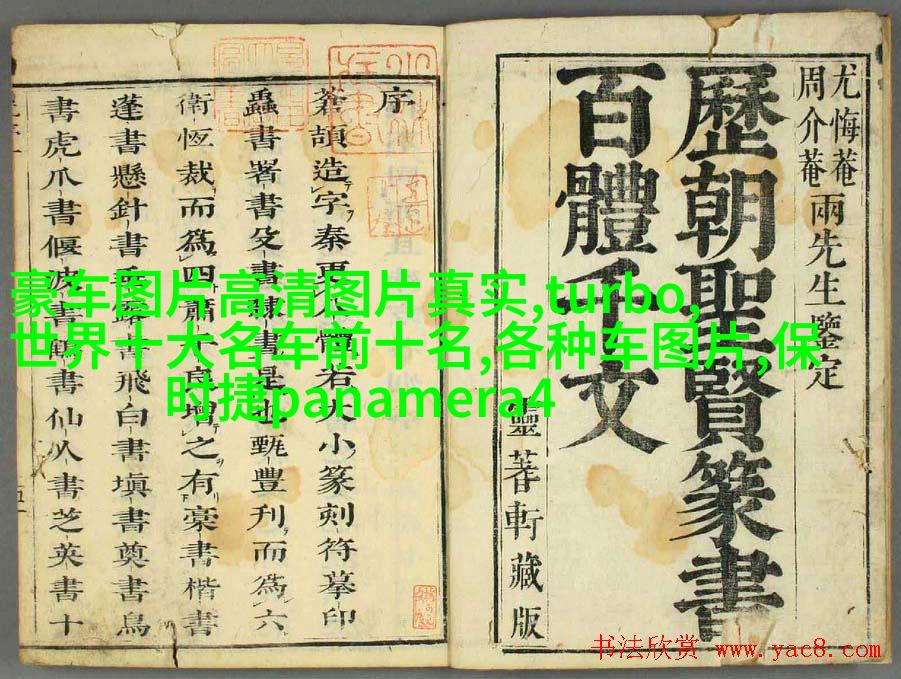 尤悔菴
周介菴
兩先生鑒定
歷朝聖賢篆書
百體千文
靈蓍軒藏版
序
蒼頡造字秦若大小篆刻符摹印
蟲書署書殳書隸書是也甄豐刋而為六
衛恆裁而爲四增之有藁書楷書
蓬書懸針書飛白書塡書奠書鳥
書虎爪書偃波書鶴書仙人書芝英書十
豪车图片高清图片真实,turbo,
世界十大名车前十名,各种车图片,保
时捷panamera4
书法欣赏 www.yac8.com